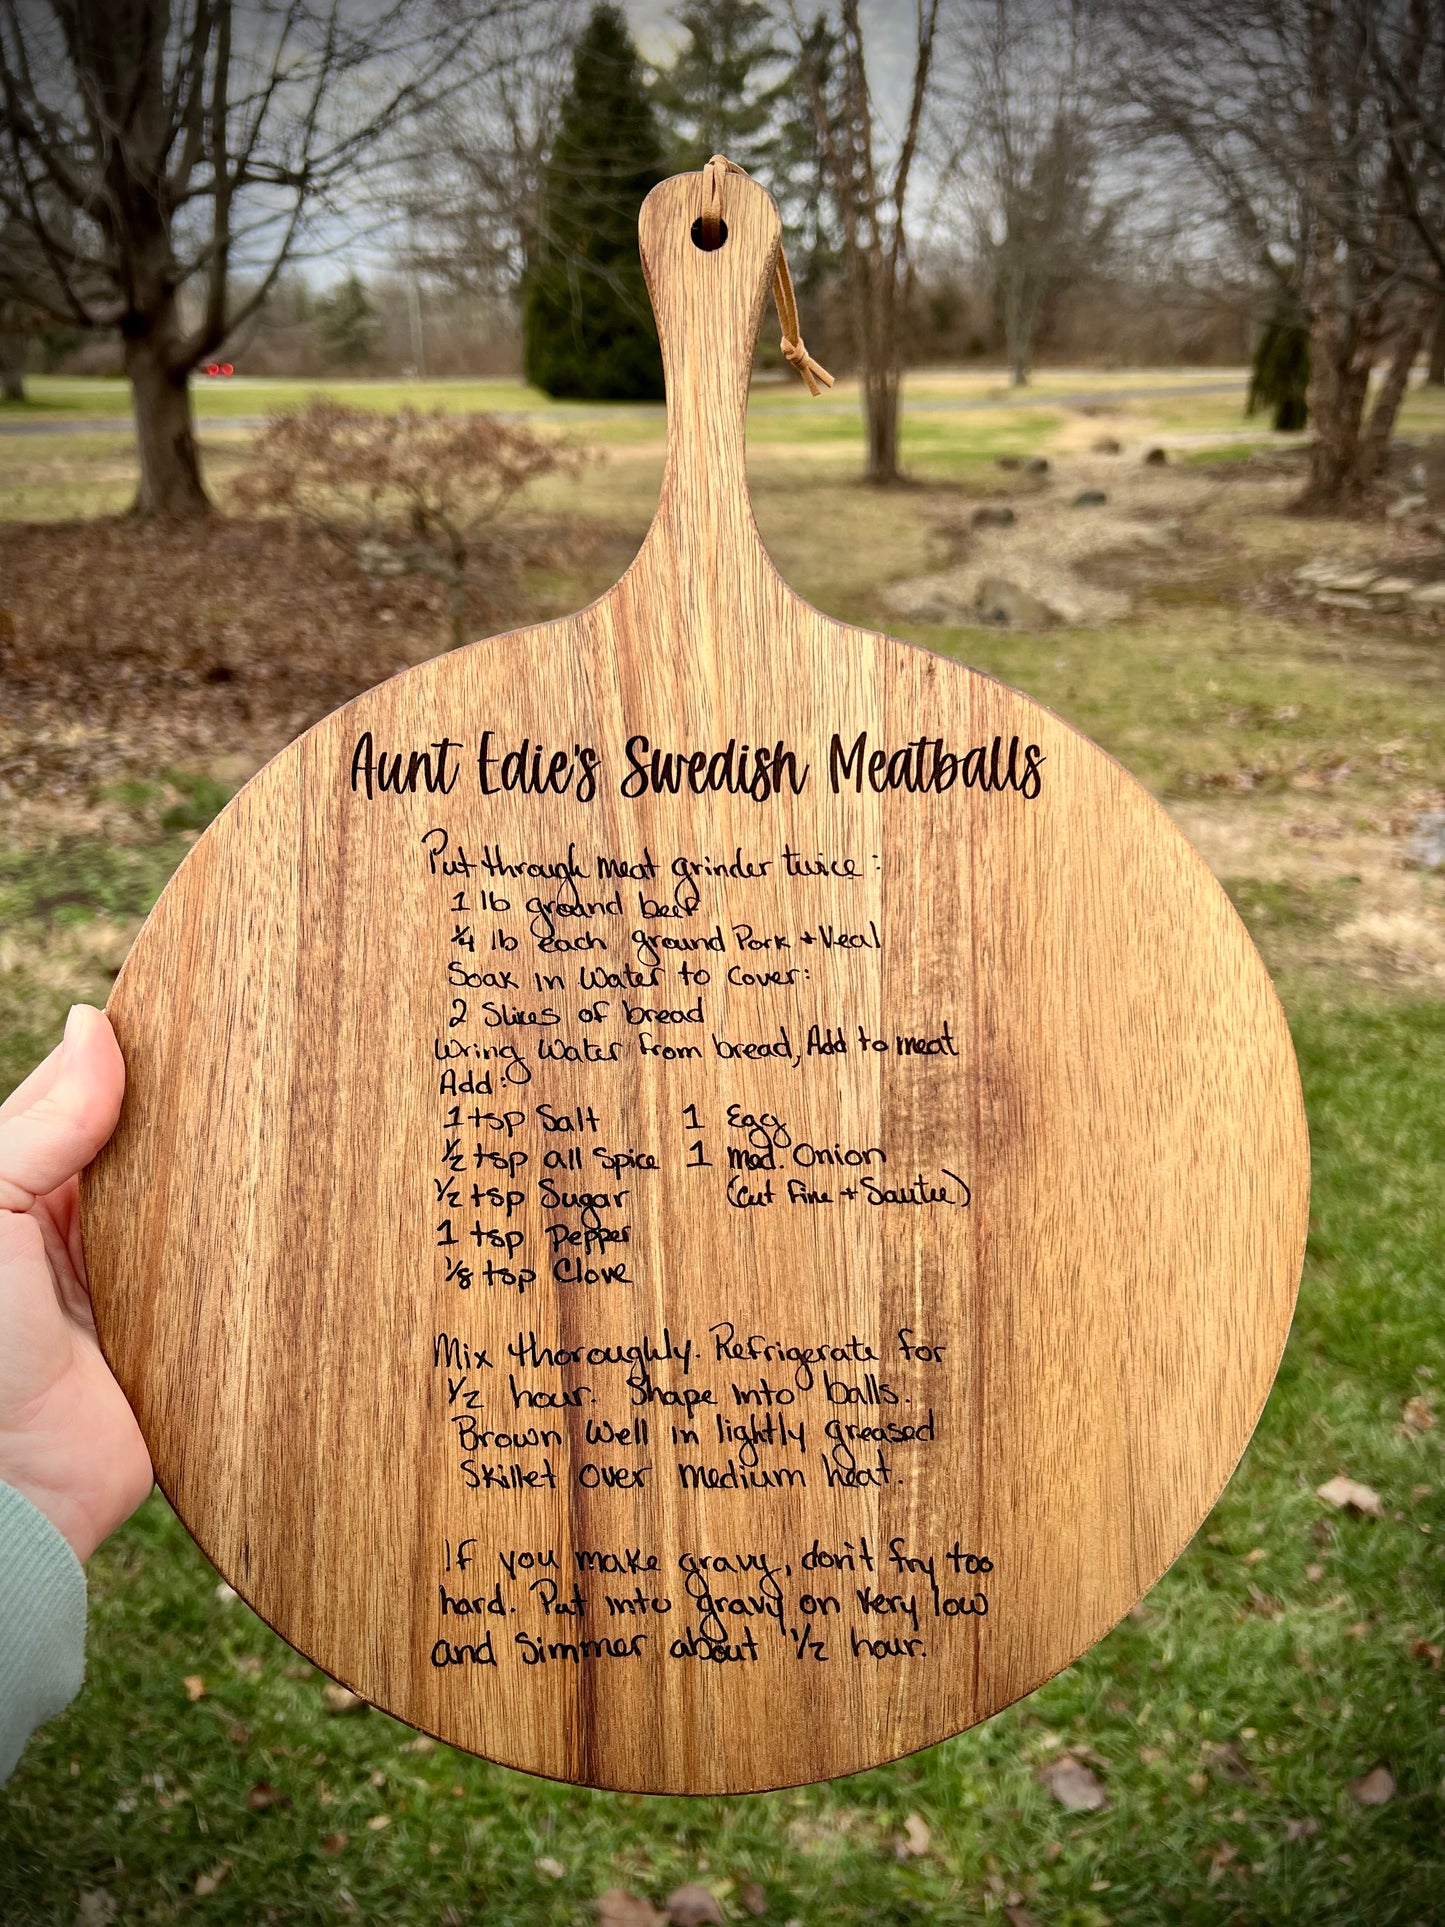 Aunt Edie's Swedish Meatballs
Put through meat grinder twice:
1 lb ground beef
1/4 lb each ground Pork + Veal
Soak in Water to Cover:
2 Slices of bread
Wring Water from bread, Add to meat
Add:
1 tsp Salt 1 Egg
1/2 tsp all Spice 1 med. Onion
1/2 tsp Sugar (Cut Fine + Sautee)
1 tsp Pepper
1/8 tsp Clove
Mix thoroughly. Refrigerate for
1/2 hour. Shape into balls.
Brown Well in lightly greased
Skillet over medium heat.
If you make gravy, don't fry too
hard. Put into gravy on very low
and Simmer about 1/2 hour.